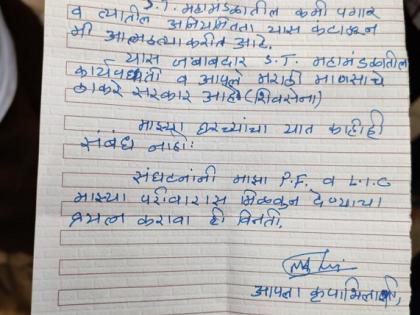 S.T. महामंडळातील कमी पगार
व त्यातील अनियमितता यास कंटाळून
मी आत्महत्या करीत आहे.
यास जबाबदार S.T. महामंडळातील
कार्यपध्दती व आपले मराठी माणसाचे
ठाकरे सरकार आहे (शिवसेना)
माझ्या घरच्यांचा यात काहीही
संबंध नाही.
संघटनांनी माझा P.F. व L.I.C
माझ्या परीवारास मिळवून देण्याचा
प्रयत्न करावा ही विनंती.
आपला कृपाभिलाषी,